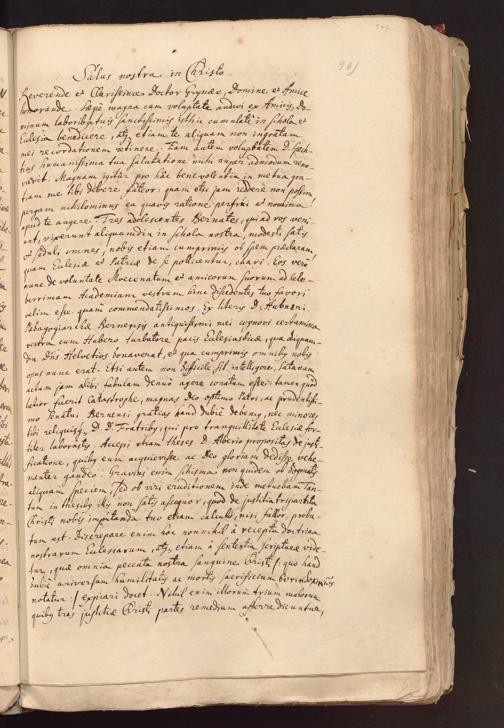 961
Salus nostra in Christo.
Reverende et Clarissime Doctor Grynaee, Domine et Amice
honorande. Saepe magna cum voluptate audivi ex Amicis, Do-
minum laboribus tuis sanctissimis isthic cumulate in schola et
Ecclesia benedicere, atque etiam te aliquam non ingratam
mei recordationem retinere. Eam autem voluptatem D.
humanissima tua salutatione mihi nuper admodum reno-
vavit. Magnam igitur pro hac benevolentia in me tua gra-
tiam me tibi debere fateor: quam etsi jam reddere non possim
pergam nihilominus ea quavis ratione perfrui et nomina
apud te augere. Tres adolescentes Bernates, qui ad vos veni-
unt, vixerunt aliquamdiu in schola nostra, modesti satis
et seduli, omnes, nobis etiam cumprimis ob spem praeclaram,
quam Ecclesiae et Patriae de se pollicentur, chari. Eos vero
nunc de voluntate Moecenatum et amicorum suorum ad cele-
berrimam Academiam vestram hinc discedentes tuo favori
velim esse quam commendatissimos. Ex literis D. Hubneri
Paedagogiarchae Bernensis antiquissimi mei cognovi certamina
vestra cum Hubero turbatore pacis Ecclesiasticae, quae aliquam-
diu D\u00f1s Helvetios exercuerant, et qua cumprimis omnibus nobis
opus nunc erat. Etsi autem non difficile sit intelligere, satanam
actam jam alibi fabulam denuo agere conatum esse: tamen quod
latior fuerit Catastrophe, magnas Deo optimo Patri, ac prudentissi-
mo Senatui Bernensi gratias haud dubie debemus, nec minores
tibi reliquisque D. D. Fratribus, qui pro tranquillitate Ecclesiae for-
titer laborastis. Accepi etiam theses D. Alberio propositas de justi-
ficatione, quibus eum acquievisse ac Deo gloriam dedisse, vehe-
menter gaudeo. Gravius enim schisma non quidem ob dogmatis
aliquam speciem, sed ob viri eruditionem inde metuebam. Tan-
tum in thesibus illis non satis assequor, quod de justitia tripartita
Christi nobis imputanda tuo etiam calculo, nisi fallor, proba-
tum est. Discrepare enim hoc non nihil a recepta doctrina
nostrarum Ecclesiarum, atque etiam a sententia scripturae vide-
tur, quae omnia peccata nostra sanguine Christi /: quo haud
dubie universum humilitatis ac mortis sacrificium
notatur :/ expiari docet. Nihil enim illorum trium malorum
quibus tres justitiae Christi partes remedium afferre dicuntur,